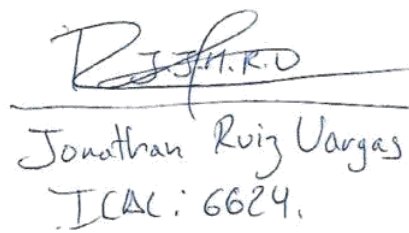 J.J.H.R.D
Jonathan Ruiz Vargas
ICAC: 6624.